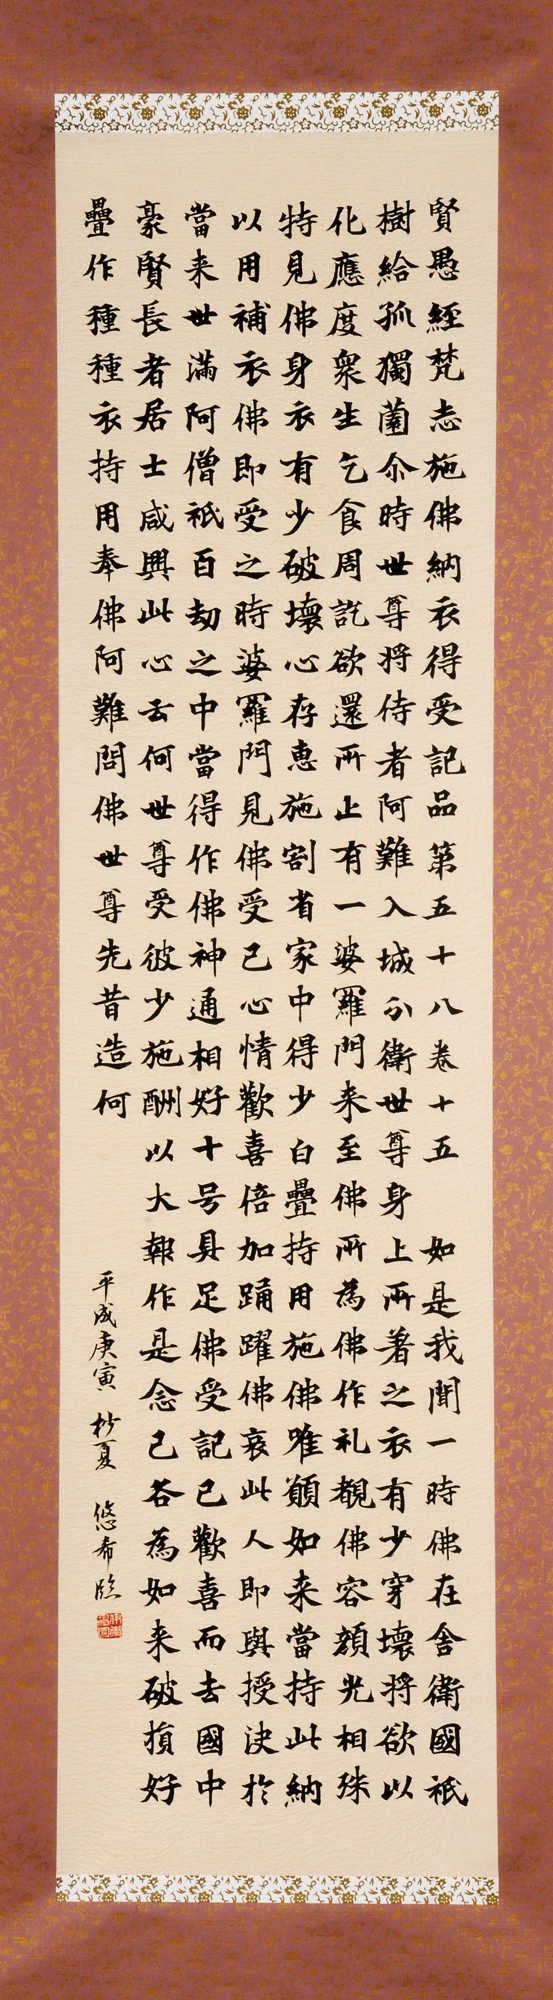 賢愚經梵志施佛納衣得受記品第五十八卷十五　如是我聞一時佛在舍衛國祇
樹給孤獨薗尒時世尊將侍者阿難入城分衛世尊身上所著之衣有少穿壞將欲以
化應度衆生乞食周訖欲還所止有一婆羅門来至佛所為佛作礼覩佛容顔光相殊
特見佛身衣有少破壞心存惠施割省家中得少白疊持用施佛唯願如来當持此納
以用補衣佛即受之時婆羅門見佛受已心情歡喜倍加踊躍佛哀此人即與授決於
當来世滿阿僧祇百劫之中當得作佛神通相好十号具足佛受記已歡喜而去國中
豪賢長者居士咸興此心云何世尊受彼少施酬以大報作是念已各為如来破損好
疊作種種衣持用奉佛阿難問佛世尊先昔造何
平成庚寅 杪夏 悠希臨